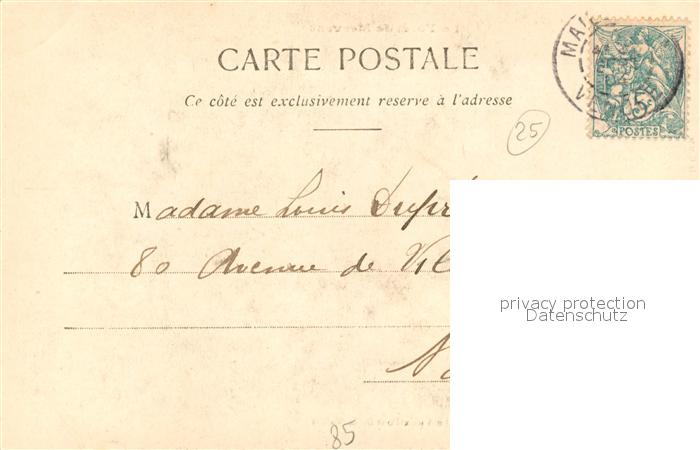 CARTE POSTALE
Ce côté est exclusivement reserve à l'adresse
25
5
POSTES
Madame Louis
80 Avenue de
privacy protection
Datenschutz
85